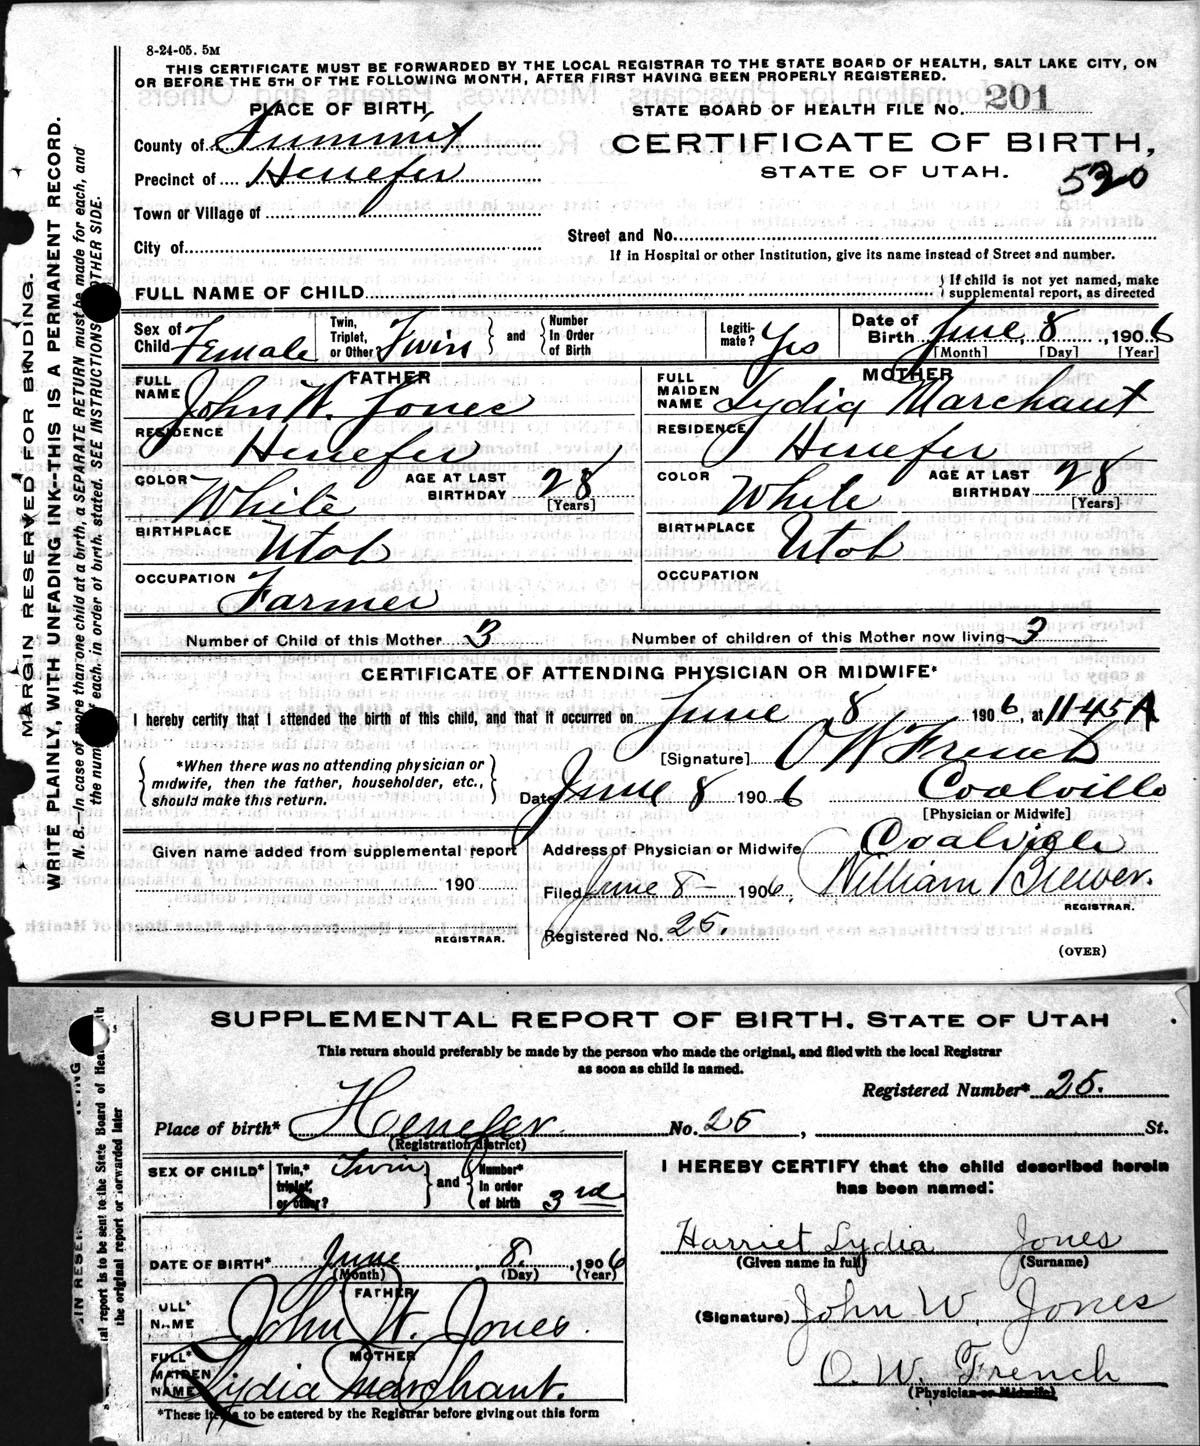 8-24-05. 5M
THIS CERTIFICATE MUST BE FORWARDED BY THE LOCAL REGISTRAR TO THE STATE BOARD OF HEALTH, SALT LAKE CITY, ON
OR BEFORE THE 5TH OF THE FOLLOWING MONTH, AFTER FIRST HAVING BEEN PROPERLY REGISTERED.
PLACE OF BIRTH
STATE BOARD OF HEALTH FILE No. 201
County of Summit
CERTIFICATE OF BIRTH,
Precinct of Henefer
STATE OF UTAH.
520
Town or Village of
City of
Street and No.
If in Hospital or other Institution, give its name instead of Street and number.
FULL NAME OF CHILD
If child is not yet named, make
supplemental report, as directed
Sex of Child Female
Twin, Triplet, or Other Twin
and
Number In Order of Birth
Legiti-mate? Yes
Date of Birth June 8, 1906
[Month] [Day] [Year]
FATHER
FULL NAME John W. Jones
RESIDENCE Henefer
COLOR White
AGE AT LAST BIRTHDAY 28
[Years]
BIRTHPLACE Utah
OCCUPATION Farmer
MOTHER
FULL MAIDEN NAME Lydia Marchant
RESIDENCE Henefer
COLOR White
AGE AT LAST BIRTHDAY 28
[Years]
BIRTHPLACE Utah
OCCUPATION
Number of Child of this Mother 3
Number of children of this Mother now living 3
CERTIFICATE OF ATTENDING PHYSICIAN OR MIDWIFE*
I hereby certify that I attended the birth of this child, and that it occurred on June 8 1906, at 11-45 A
[Signature] O W French
*When there was no attending physician or
midwife, then the father, householder, etc.,
should make this return.
Date June 8 1906
Coalville
[Physician or Midwife]
Given name added from supplemental report
190
REGISTRAR.
Address of Physician or Midwife Coalville
Filed June 8- 1906, William Brewer.
REGISTRAR.
Registered No. 25.
(OVER)
MARGIN RESERVED FOR BINDING.
WRITE PLAINLY, WITH UNFADING INK—THIS IS A PERMANENT RECORD.
N. B.—In case of more than one child at a birth, a SEPARATE RETURN must be made for each, and
the number of each, in order of birth, stated. SEE INSTRUCTIONS OTHER SIDE.
SUPPLEMENTAL REPORT OF BIRTH. STATE OF UTAH
This return should preferably be made by the person who made the original, and filed with the local Registrar
as soon as child is named.
Registered Number* 25.
Place of birth* Henefer. No. 25, St.
(Registration district)
SEX OF CHILD*
Twin,* triplet, or other? Twin
and
Number* in order of birth 3rd
DATE OF BIRTH* June 8, 1906
(Month) (Day) (Year)
FATHER
FULL* NAME John W. Jones.
MOTHER
FULL* MAIDEN NAME Lydia Marchant.
*These items to be entered by the Registrar before giving out this form
I HEREBY CERTIFY that the child described herein
has been named:
Harriet Lydia Jones
(Given name in full) (Surname)
(Signature) John W. Jones
O. W. French
(Physician or Midwife)
IN RESER
LING
al report is to be sent to the State Board of Heal
the original report or forwarded later